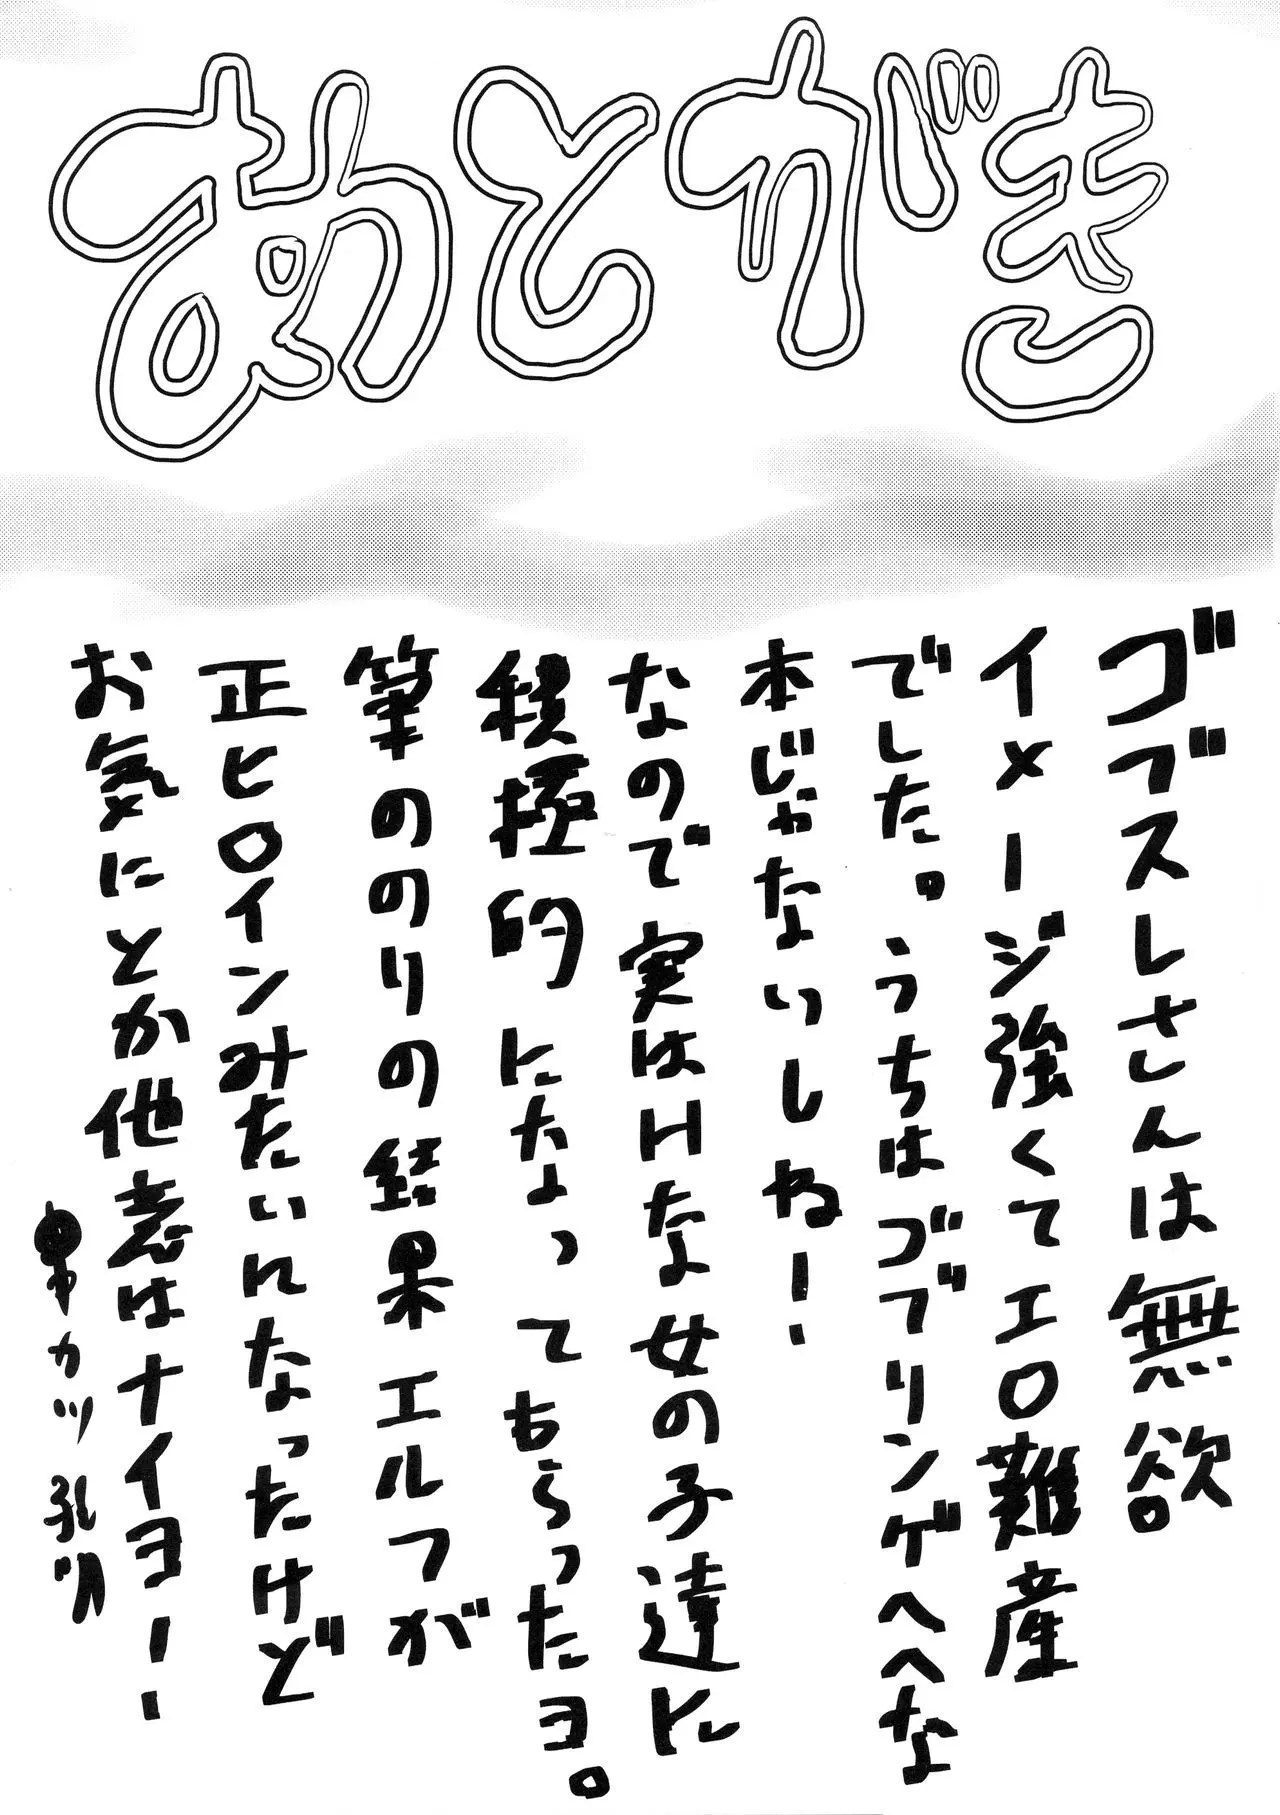 あとがき
ゴブスレさんは無欲
イメージ強くてエロ難産
でした。うちはゴブリンゲヘヘな
本じゃないしね!
なので実はHな女の子達に
積極的になってもらったヨ。
筆ののりの結果エルフが
正ヒロインみたいになったけど
お気にとか他意はナイヨ!
カヅ